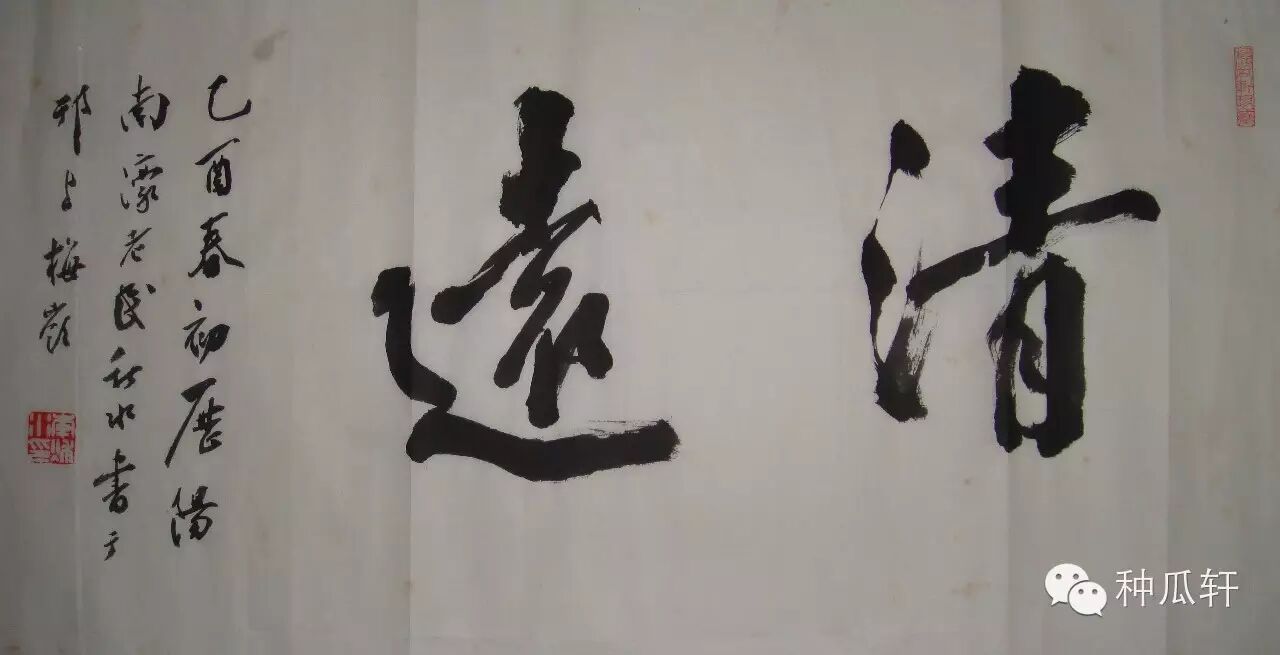 清遠
乙酉春初歷陽
南濠老民秋水書于
邗上梅嶺
种瓜轩